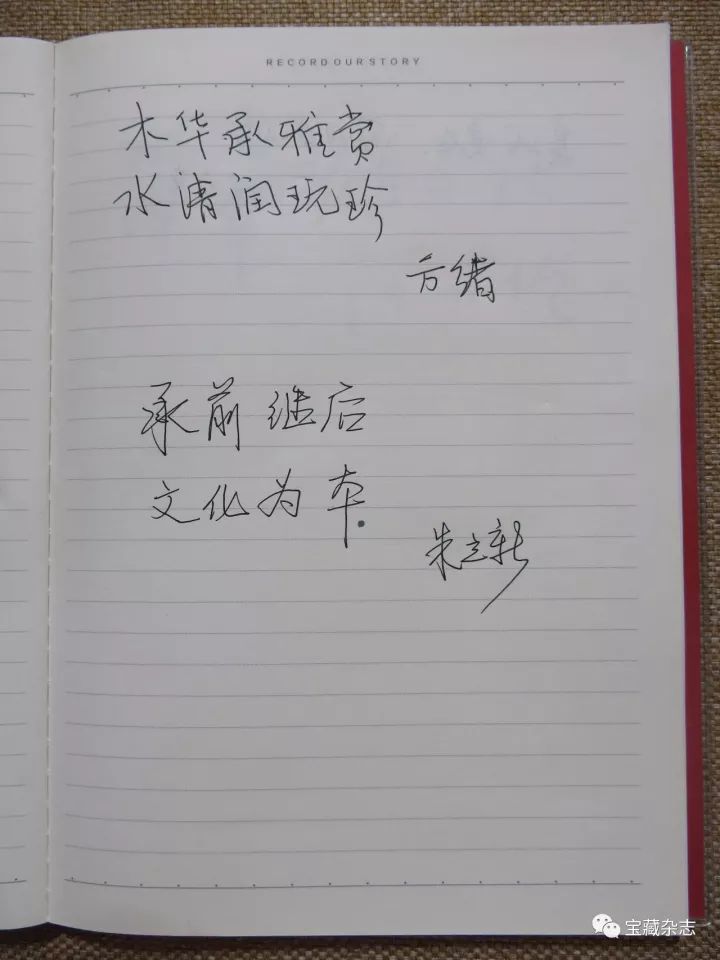 RECORD OUR STORY
木华承雅赏
水清润玩珍
方绪
承前继后
文化为本.
朱立新
宝藏杂志